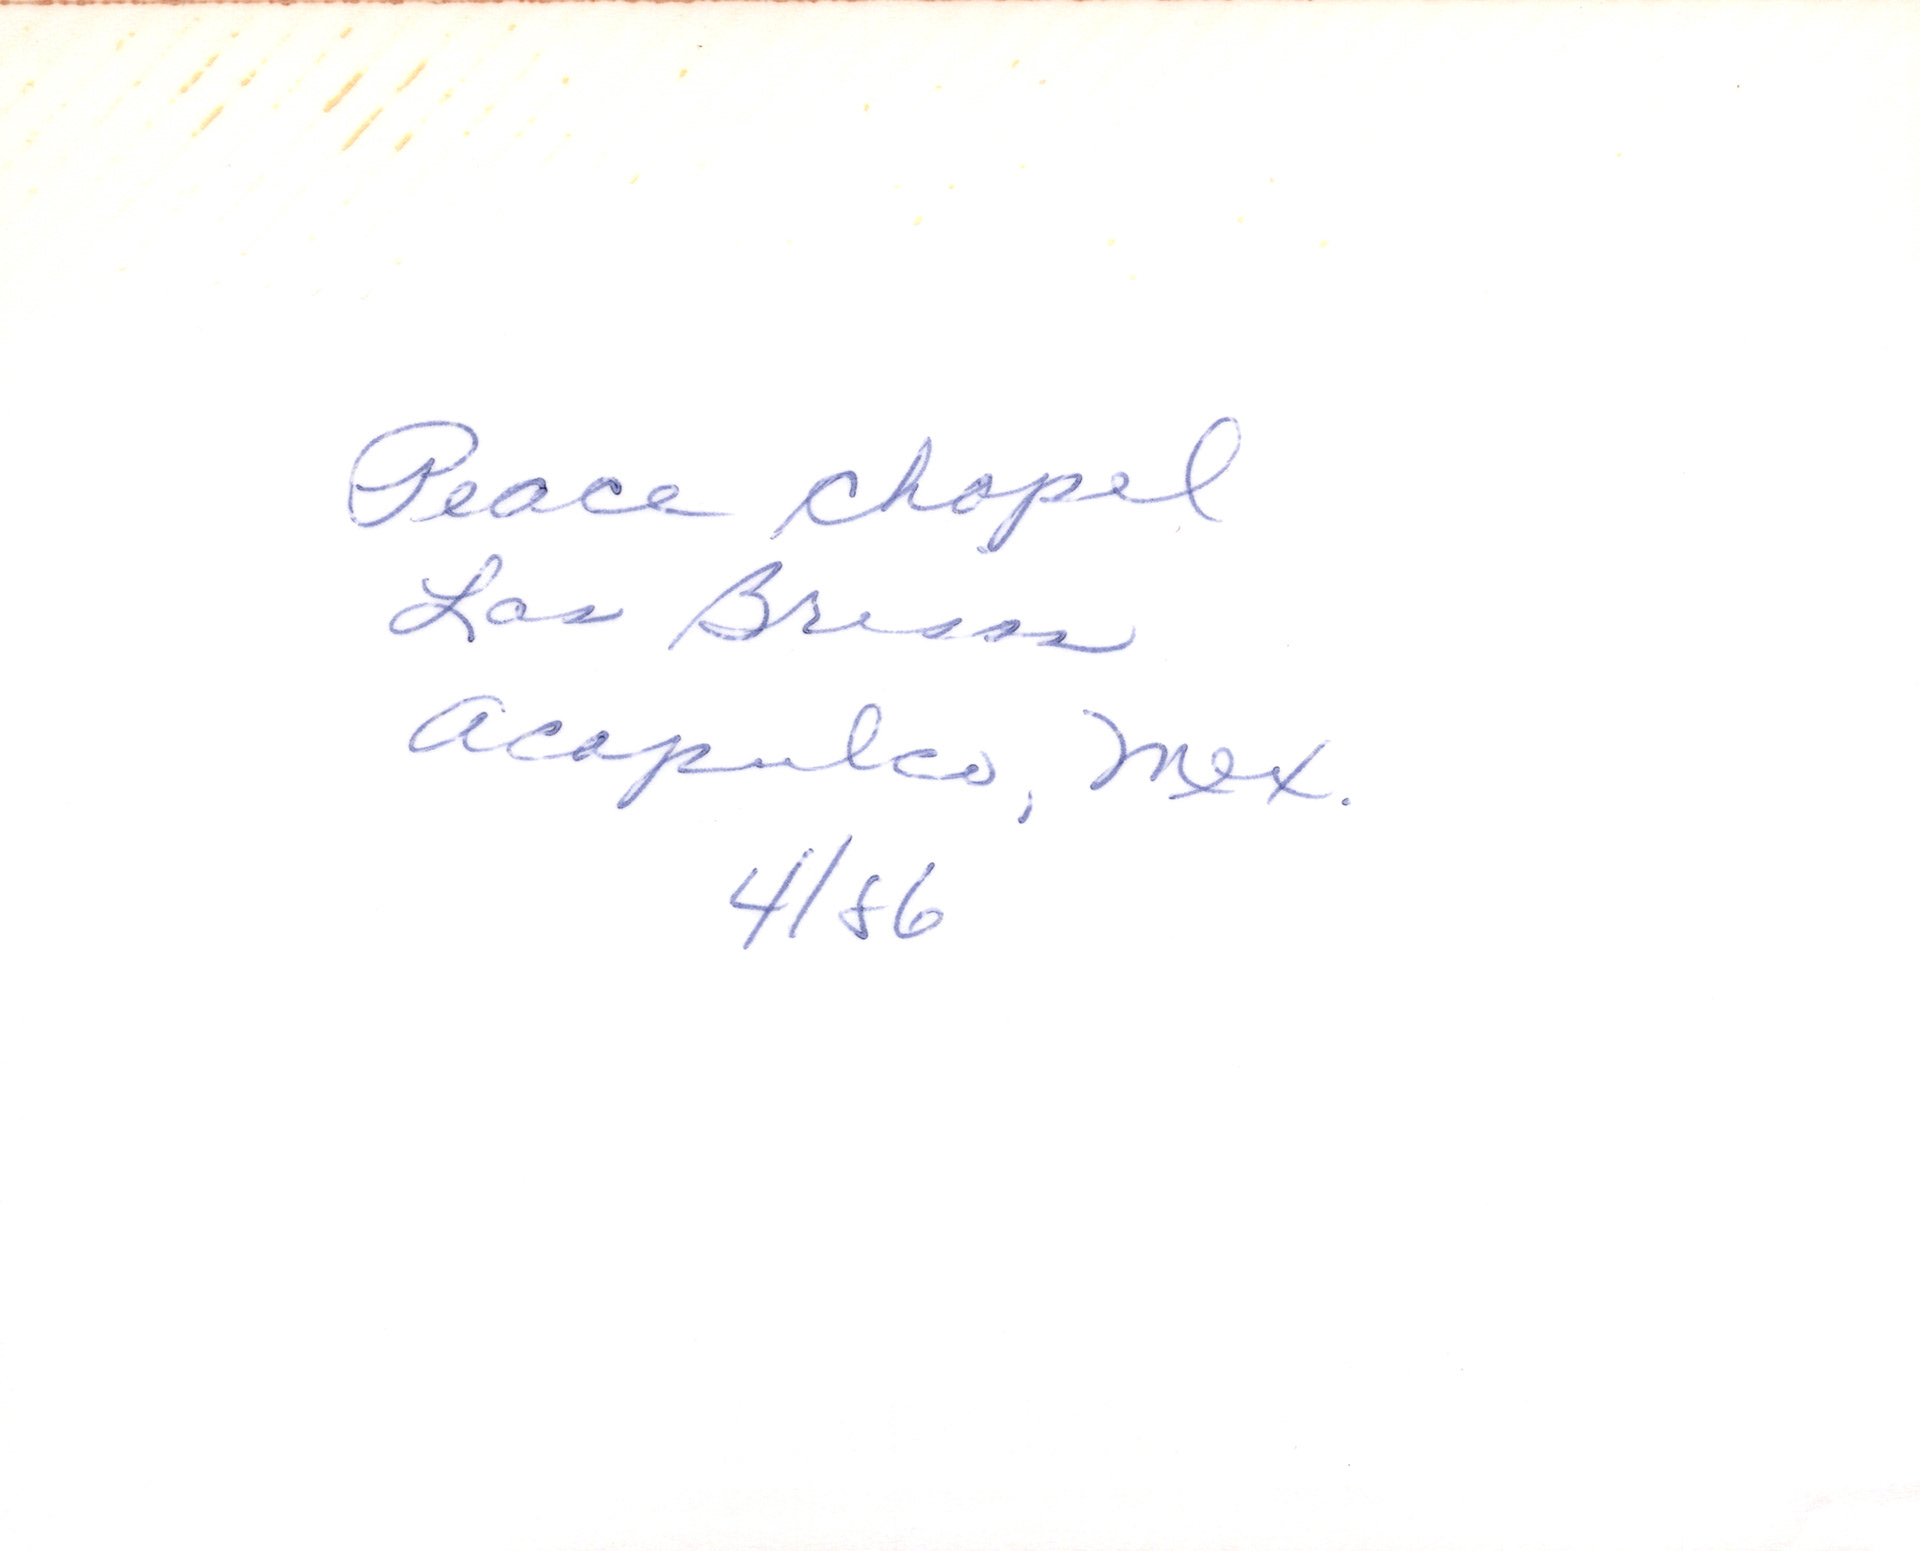 Peace chapel
Las Brisas
Acapulco, Mex.
4/86